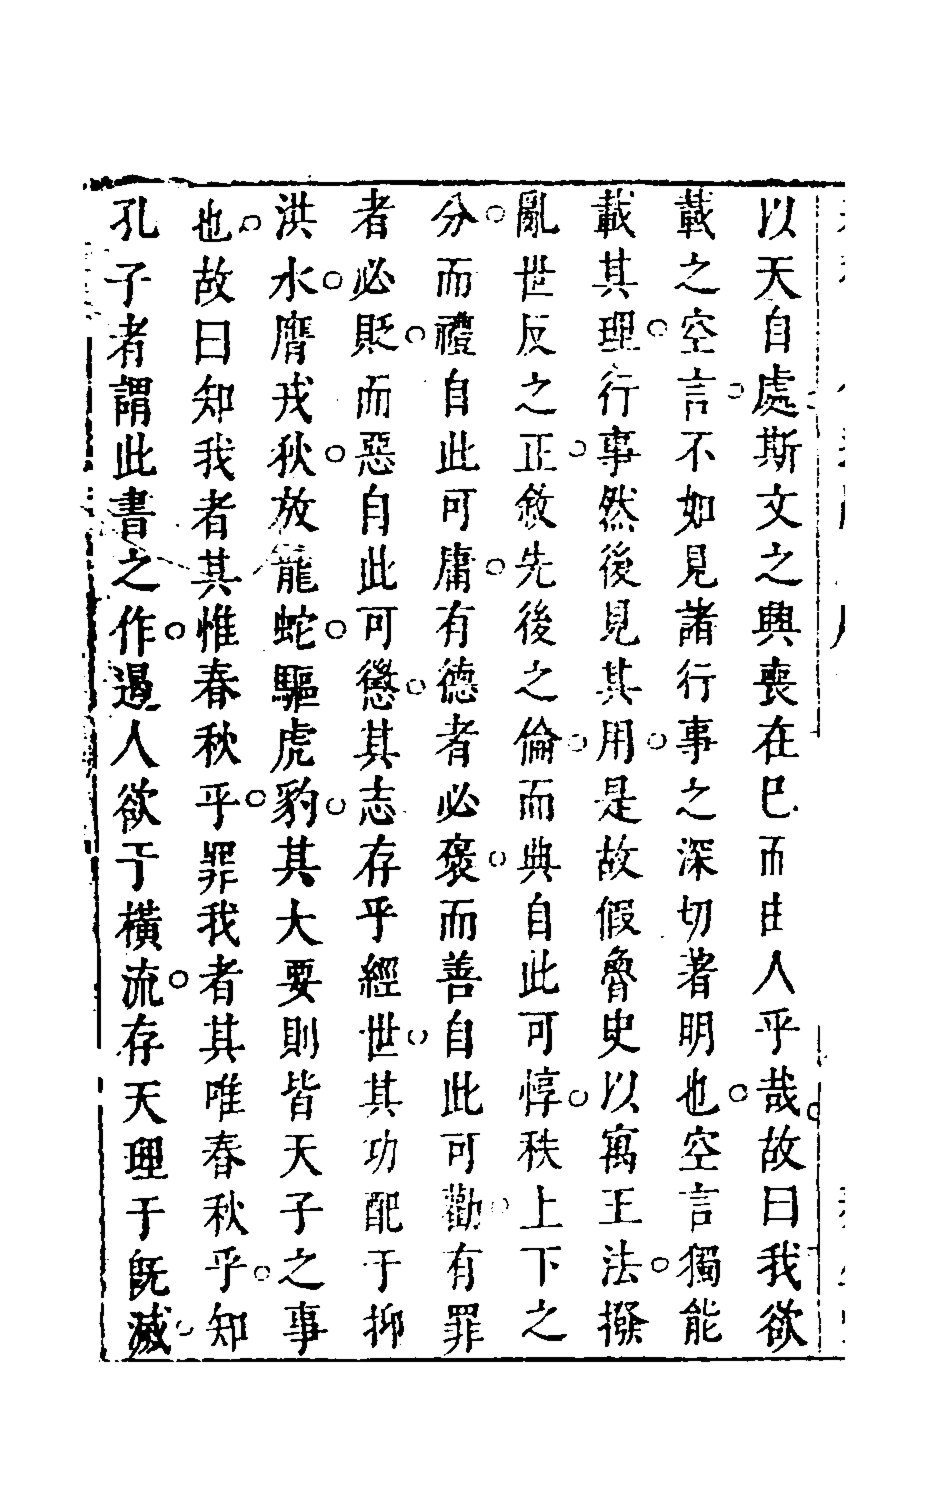 以天自處斯文之興喪在已而由人乎哉故曰我欲
載之空言不如見諸行事之深切著明也空言獨能
載其理行事然後見其用是故假魯史以寓王法撥
亂世反之正敘先後之倫而典自此可惇秩上下之
分而禮自此可庸有德者必褒而善自此可勸有罪
者必貶而惡自此可懲其志存乎經世其功配于抑
洪水膺戎狄放龍蛇驅虎豹其大要則皆天子之事
也故曰知我者其惟春秋乎罪我者其唯春秋乎知
孔子者謂此書之作遏人欲于橫流存天理于旣滅